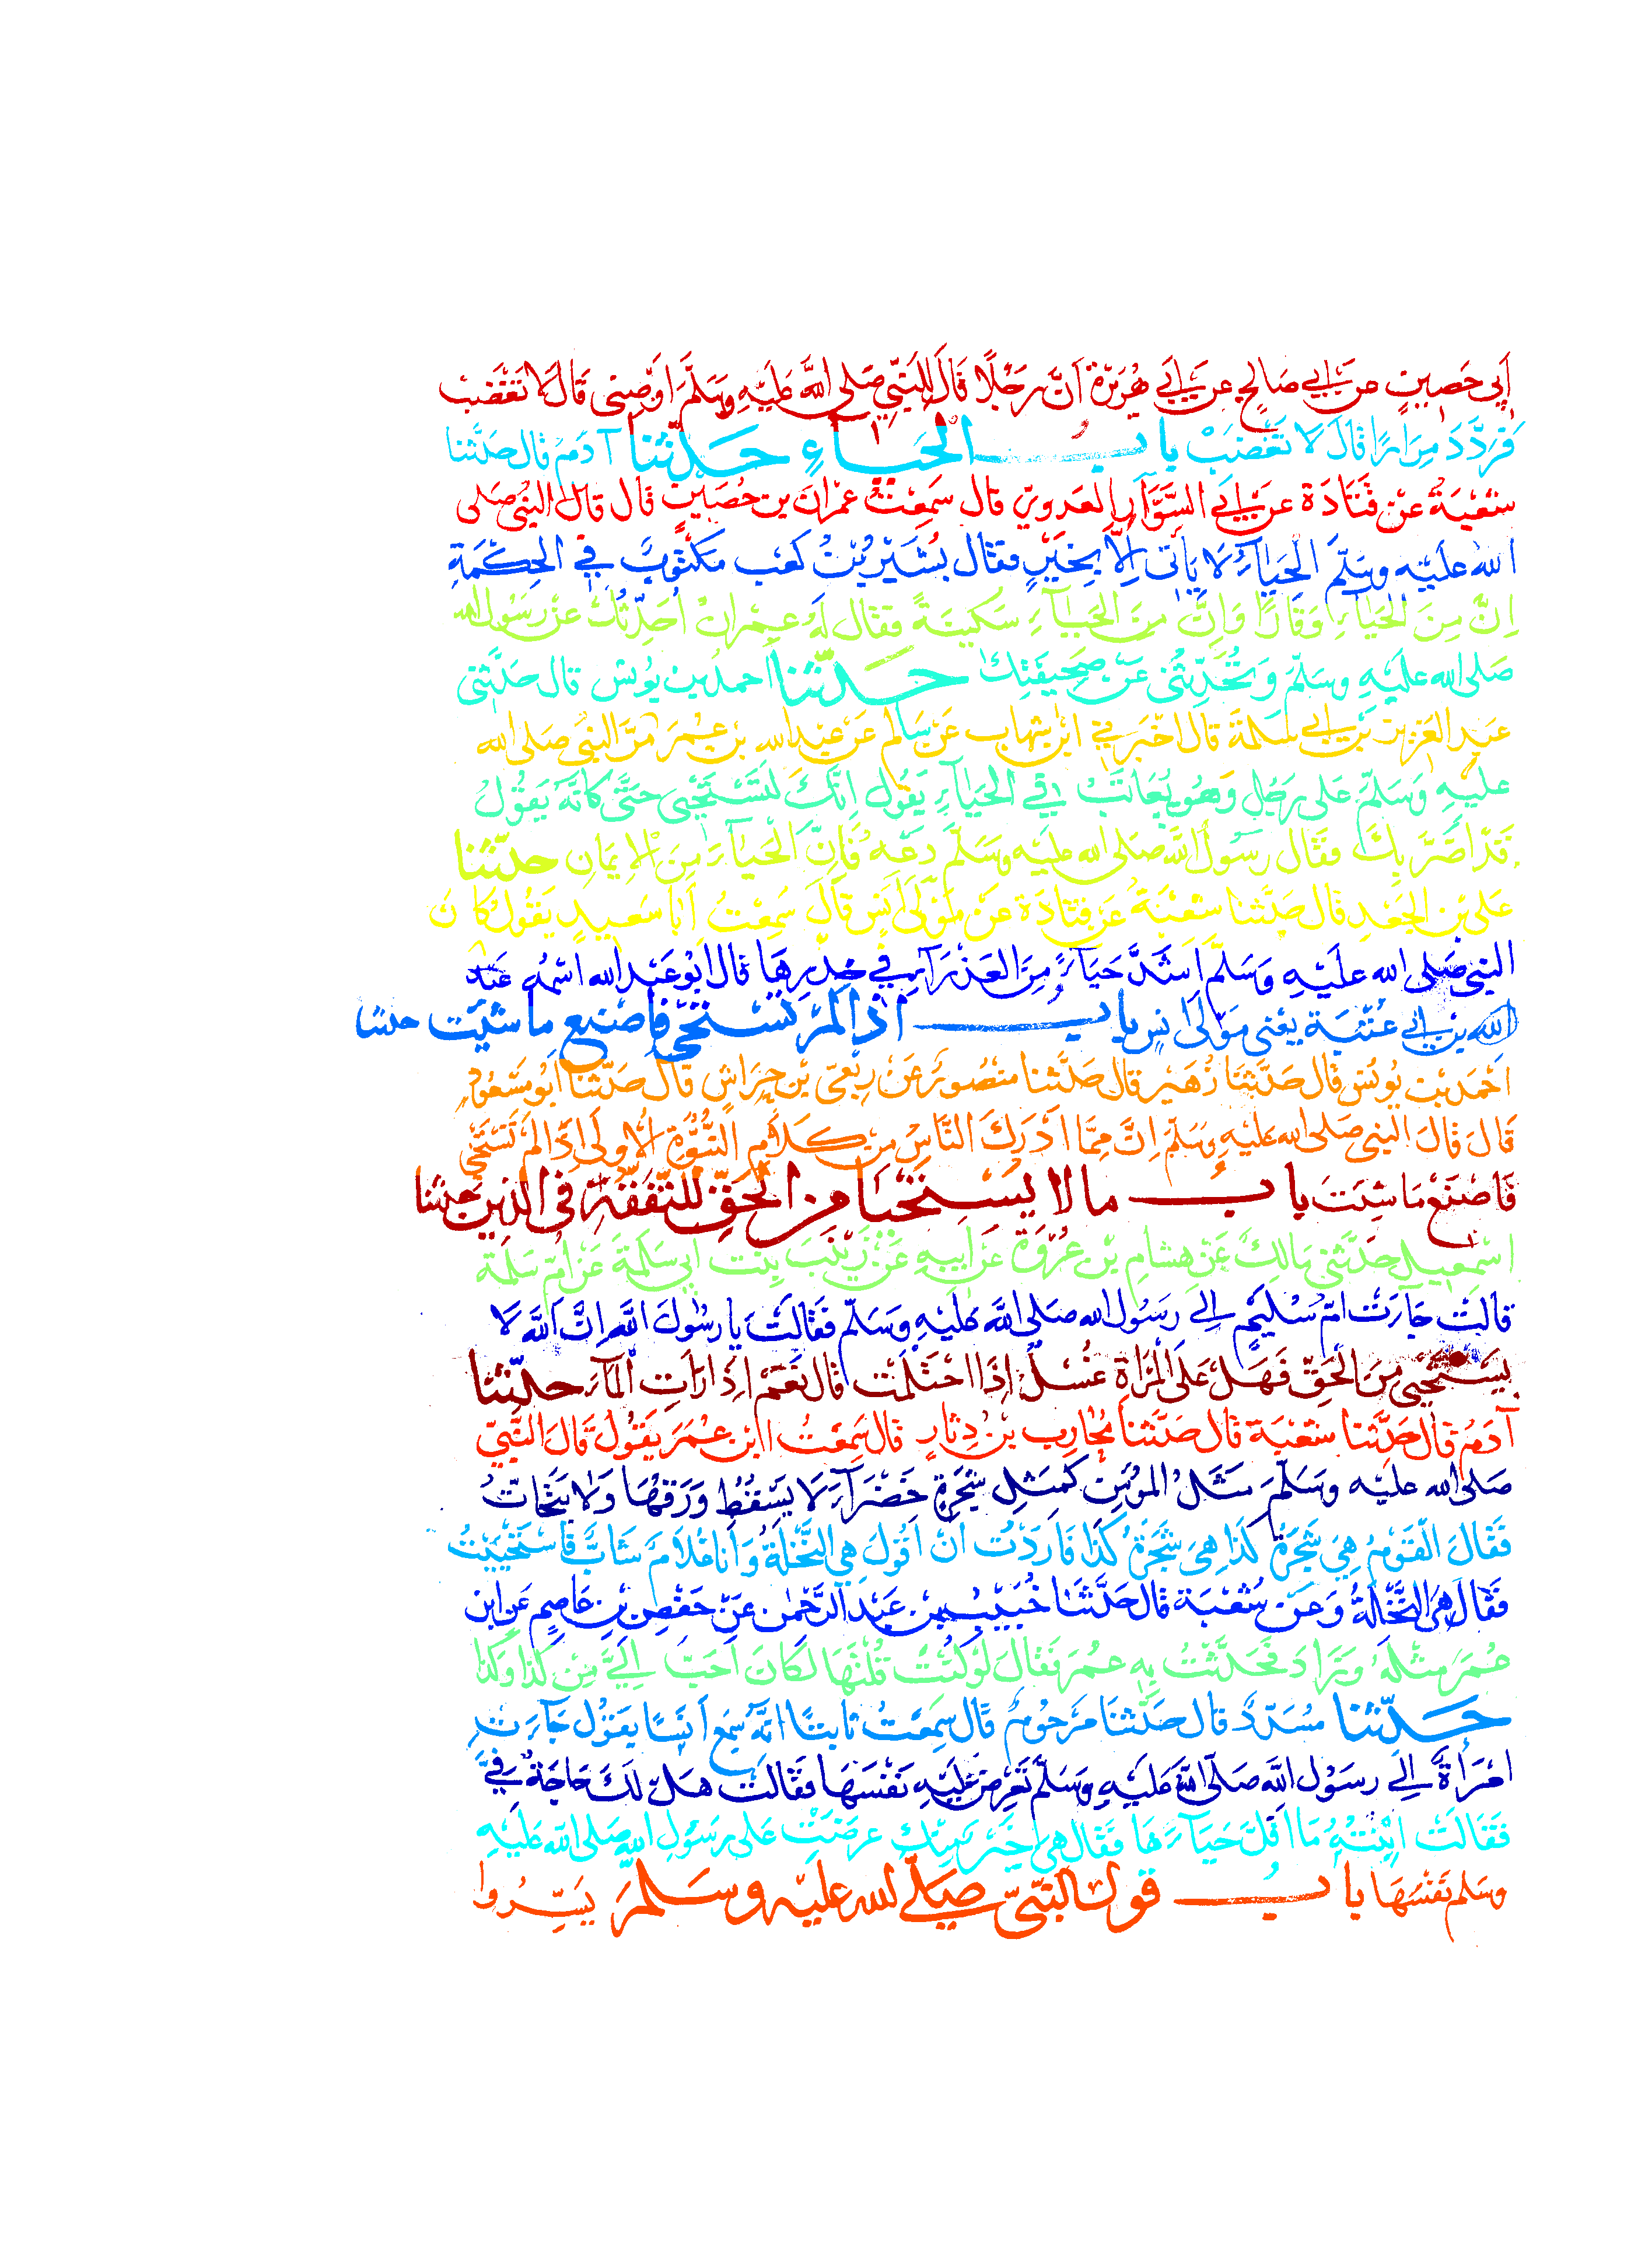 أَبِي حَصِينٍ عن أبي صَالِحٍ عن أبي هُرَيْرَةَ أنَّ رَجُلًا قَالَ لِلنَّبِيِّ صَلى اللَّه عَلَيْهِ وَسَلَّمَ أَوْصِنِى قَالَ لَا تَغْضَبْ
فَرَدَّدَ مِرَارًا قَالَ لَا تَغْضَبْ باب الحَيَاءِ حَدّثنا آدَمُ قال حَدَّثنا
شعْبَةُ عَنْ قَتَادَةَ عن أبي السَّوَّارِ العَدويّ قال سَمِعْتُ عِمْرَانَ بن حُصَيْنٍ قال قال النبيُّ صَلى
الله عَلَيْهِ وسَلَّمَ الحَيَاءُ لا يَأْتى إلَّا بِخَيْرٍ فقال بُشَيْرُ بْنُ كَعْب مَكْتُوبٌ في الحِكْمَةِ
اِنَّ مِنَ الحَيَاءِ وَقَارًا وَاِنَّ مِنَ الحَيَاءِ سَكِينَةً فقال لَهُ عِمْرَانُ أُحَدِّثُكَ عن رَسُولِ الله
صَلى الله عليْهِ وسَلّمَ وَتُحَدِّثُنى عَنْ صَحِيفَتِكَ حَدّثنا احمدُ بن يُونسَ قال حَدَّثنى
عَبد العَزيز بن أبي سَلمَةَ قال اخْبَرَني ابْن شِهاب عَنْ سَالم عَنْ عبْد اللهِ بن عُمَرَ مَرَّ النبيُّ صَلى الله
عليْهِ وَسَلّمَ على رَجُلٍ وَهُو يُعَاتَبُ في الحَيَاءِ يَقُول اِنَّكَ لَتَسْتَحْيِى حَتَّى كَانَّهُ يَقُوْلُ
قَدْ اَضَرَّ بِكَ فقال رسُولُ اللَّه صَلى الله عليْه وَسَلَّمَ دَعْهُ فَاِنَّ الحَيَاءَ مِنَ الاِيمَانِ حدثنا
عَلى بْن الجَعْدِ قال حَدَّثنا شُعْبَةُ عَنْ قَتادَةَ عَنْ مَوْلَى اَنَسٍ قَالَ سَمِعْتُ أَبَا سَعِيدٍ يَقُولُ كَانَ
النبى صَلى الله عليْهِ وَسَلَّمَ اَشَدَّ حَيَاءً مِنَ العَذْرَاءِ في خِدْرِهَا قال أبُو عَبْد الله اسْمُهُ عَبْدُ
الله بن أبي عُتْبَة يعْنى مَوْلى أنسٍ باب اذا لَمْ تَسْتَحْى فاصْنع ما شئتَ حدثنا
اَحْمَد بن يُونُسَ قال حَدَّثنَا زُهَيْر قال حَدَّثنا منْصُورٌ عَنْ رِبْعِىّ بْن حِرَاشٍ قال حَدّثنا أبُو مَسْعُودٍ
قَالَ قَالَ النبى صَلى الله عليْهِ وَسَلَّمَ اِنَّ مِمَّا اَدْرَكَ النَّاسُ من كَلَامِ النُّبُوَّةِ الأُولَى اِذَا لَمْ تَسْتَحْى
فَاصْنَعْ مَا شِئتَ باب ما لا يُسْتَحْيَا من الحَقِّ لِلتَّفَقُّهِ في الدّين حدثنا
اسْمعِيل حدَّثنى مَالِكٌ عَنْ هشامِ بْن عُرْوَةَ عَن أبيهِ عَنْ زَيْنَبَ بِنْت أبي سَلَمَةَ عَنْ امّ سَلَمة
قالتْ جَاءَتْ امّ سُلَيْمٍ إلي رَسُول الله صَلى اللَّه عَلَيْهِ وَسَلّمَ فَقَالَتْ يا رسُولَ اللَّهِ اِنَّ اللَّهَ لَا
يَسْتَحْيِى مِنَ الحَقّ فَهَلْ عَلَى المَرْاَةِ غُسْلٌ اِذَا احْتَلَمَتْ قال نَعَمْ اِذَا رَاَتِ المَاءَ حدّثنا
آدَمُ قال حَدَّثنا شعْبَة قال حَدَّثنا مُحَارِب بْن دِثارٍ قال سَمِعْتُ ابن عُمَرَ يَقُولُ قَالَ النَّبِيّ
صَلى الله عليْه وسَلَّمَ مَثَلُ المُؤْمِنِ كَمَثلِ شَجَرَةٍ خَضْرَاءَ لَا يَسْقُطُ وَرَقُهَا وَلا يَتَحَاتُّ
فَقَالَ القَوْمُ هِيَ شَجَرَةُ كَذَا هِىَ شَجَرَةُ كَذَا فَارَدْتُ انْ اَقُولَ هِيَ النَّخْلَةُ وَاَنا غُلَامٌ شَابٌّ فَاسْتَحْيَيْتُ
فَقَال هِىَ النَّخْلَةُ وَعَنْ شُعْبَة قال حَدَّثنَا خُبَيْب بن عَبْدِ الرَّحْمٰن عَنْ حَفْصِ بْن عَاصِمٍ عَنِ ابن
عُمَرَ مثلهُ وَزَادَ فَحَدَّثْتُ بِهِ عمَرَ فَقَالَ لَوْ كُنْتَ قُلْتَهَا لَكَانَ اَحَبَّ اِلَيَّ مِن كَذَا وَكَذَا
حَدّثنا مُسَدَّدٌ قال حَدّثنَا مَرْحُومٌ قَال سَمِعْتُ ثابتًا انّهُ سَمِعَ اَنَسًا يقُوْل جَاءَتِ
امْرَاَةٌ اِلَى رسَوُل اللَّه صَلّى اللَّه عَلَيْهِ وسَلّمَ تَعْرِضُ عَلَيْهِ نَفْسَهَا فقالَتْ هَلْ لَكَ حَاجَةٌ فِيَّ
فَقَالَتْ اِبْنَتُهُ مَا اَقَلَّ حَيَاءَهَا فقَالَ هِىَ خَيْرٌ مِنْكِ عرضَتْ عَلى رَسُولِ اللهِ صَلى اللَّه عَليْهِ
وسَلم نَفْسَهَا باب قول النَّبىّ صَلّى الله عليْه وسَلمَ يَسِّرُوا